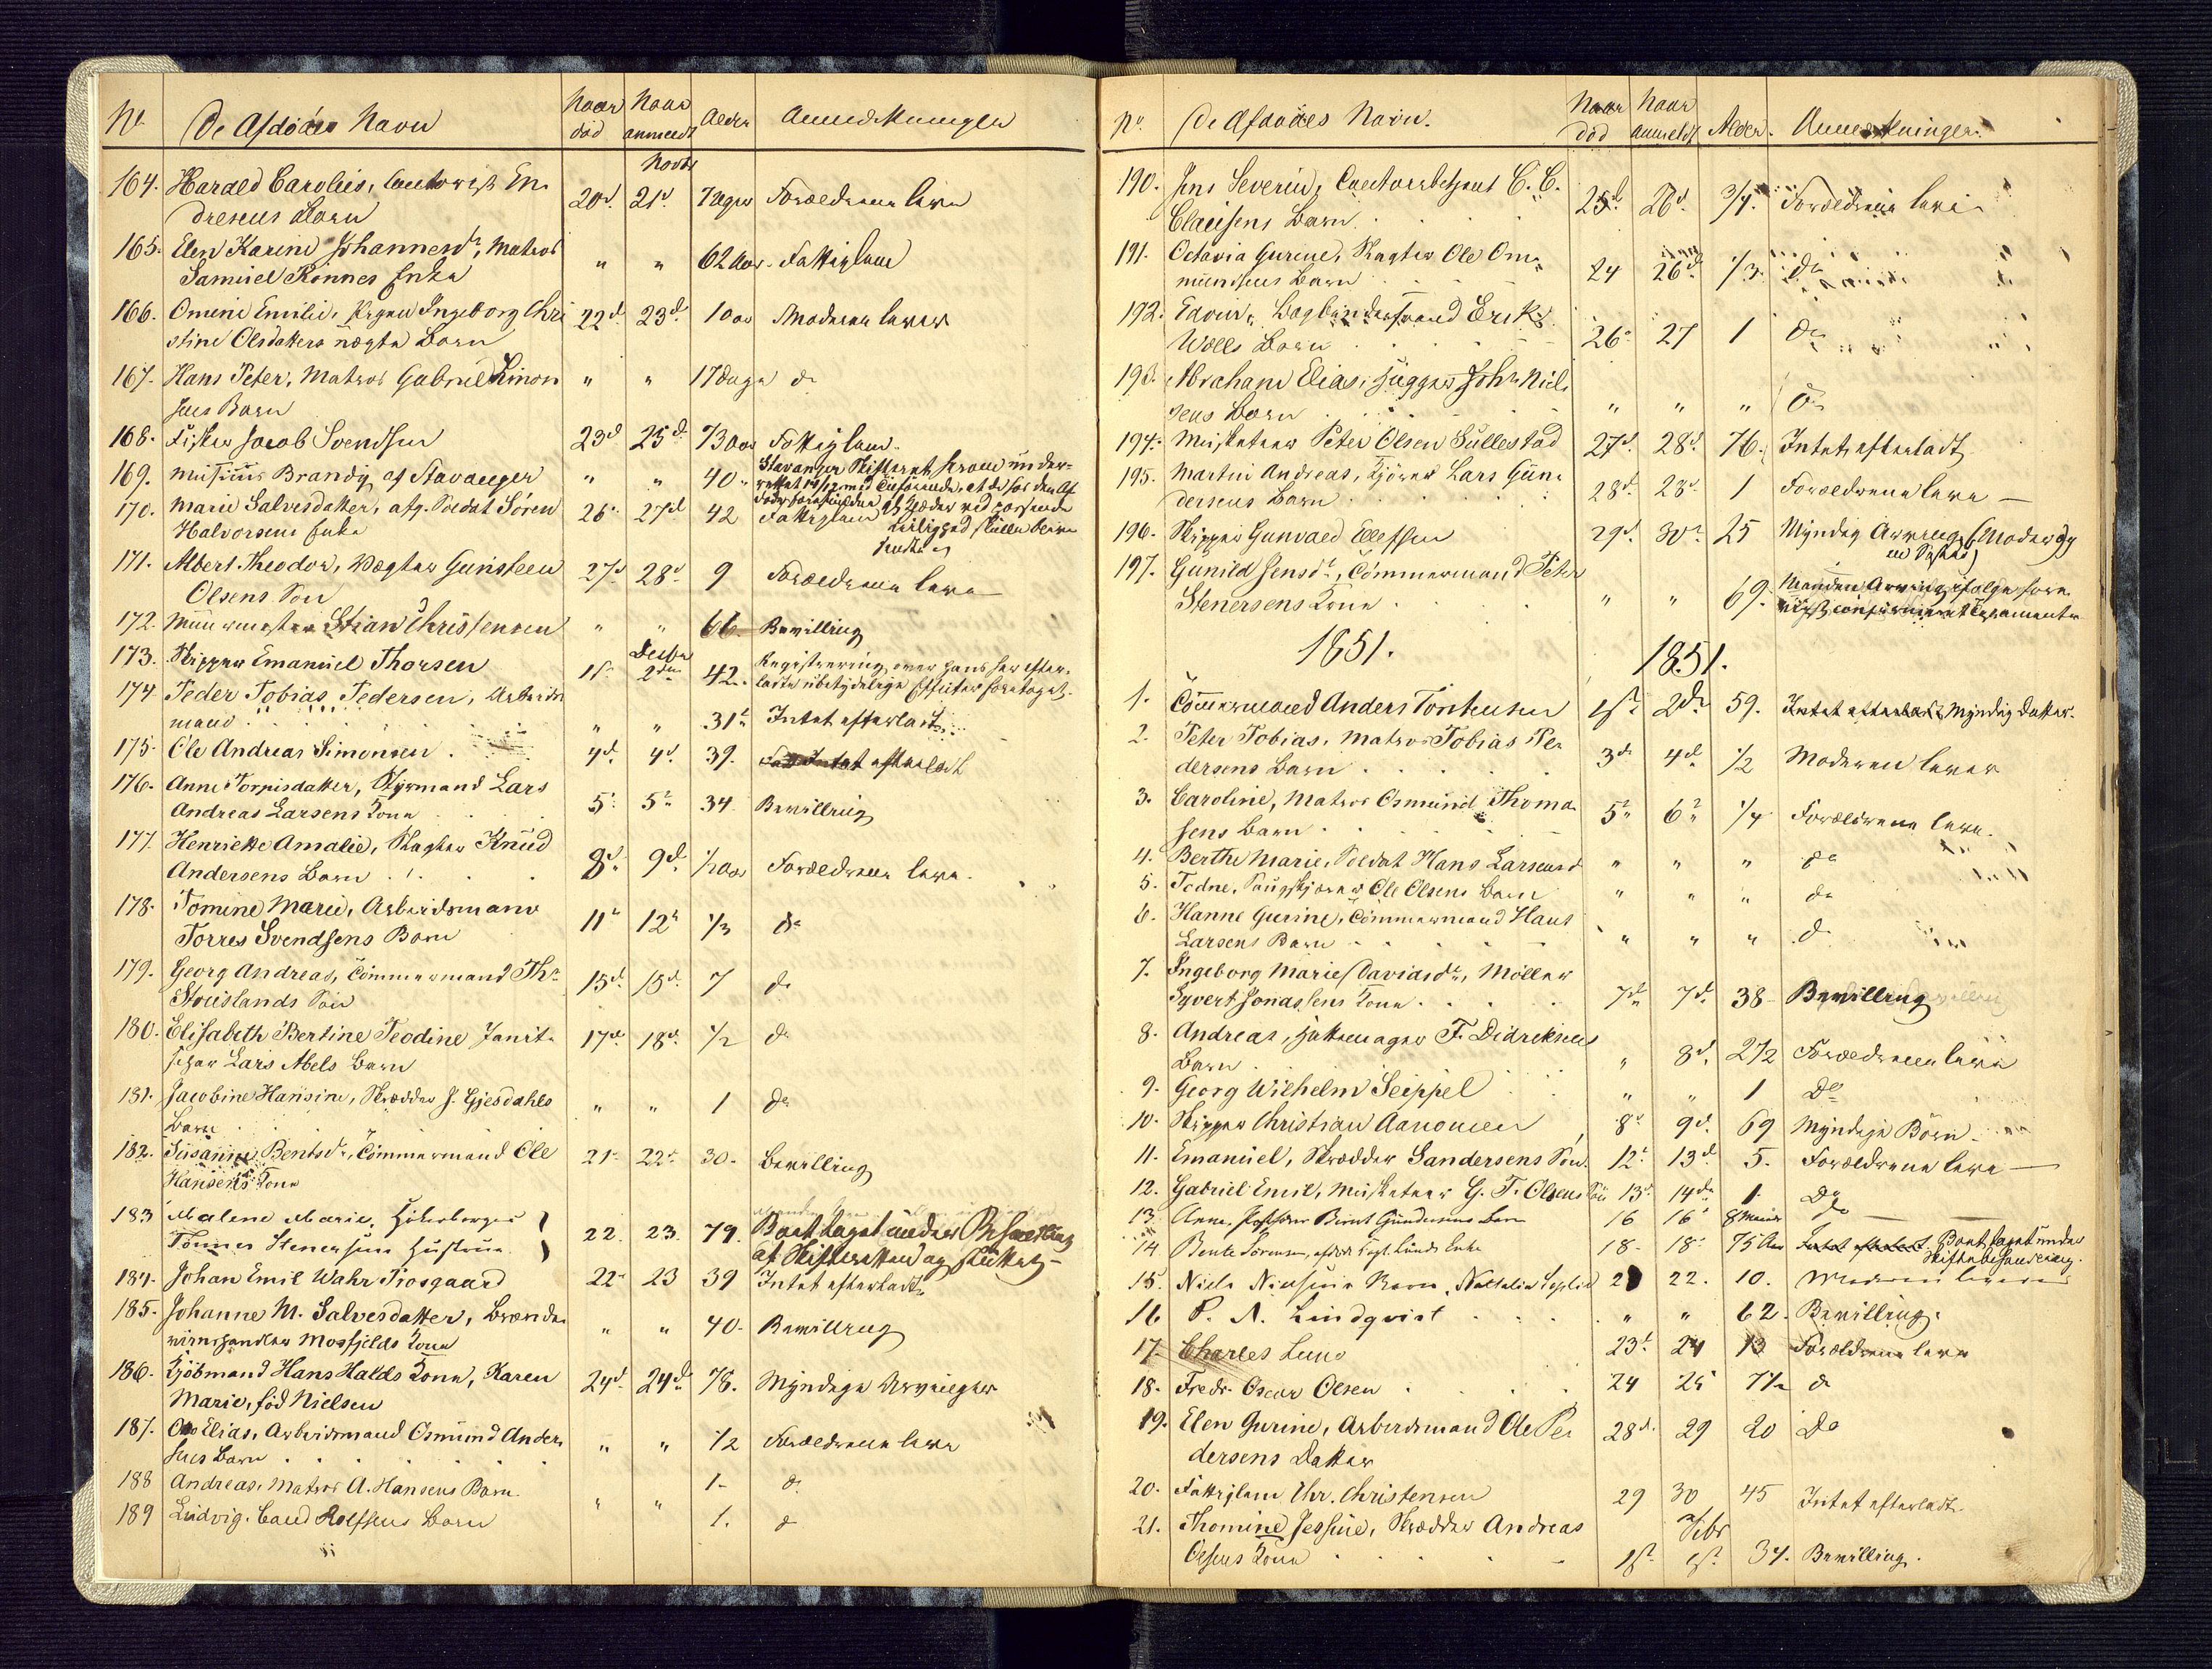 No. De Afdødes Navn Naar død Naar anmeldt Alder Anmerkninger
Novbr
164. Harald Carolius, En-
dresens Barn 20d. 21d 7 Uger Forældrene leve
165. Elen Karine Johannesdr, Matros
Samuel Rönnes Enke " " 62 Aar Fattiglem
166. Omine Emilie, Pigen Ingeborg Chri
stine Olsdatters uægte Barn 22d. 23d. 1 aar Moderen lever
167. Hans Peter, Matros Gabriel Simon
sens Barn " " 17 dage do
168. Fisker Jacob Svendsen 23d 25d. 73 aar Fattiglem
169. Brandy af Stavanger " " 40 Stavanger Skifteret
170. Marie Salvesdatter, afg. Soldat Sören
Halvorsens Enke 26 27d 42 Fattiglem
171. Albert Theodor, Vægter Gunsteen
Olsens Sön 27d 28d 9 Forældrene leve
172. Muurmester Stian Christensen " " 66 Bevilling
Decbr
173. Skipper Emanuel Thorsen 1st 2den 42. Registrering over hans her efter-
ladte ubetydelige Effecter foretaget.
174 Peder Tobias Pedersen, Arbeids
mand " " 31 Intet efterladt
175. Ole Andreas Simonsen 4d. 4d. 39. Intet efterladt
176. Anne Tornisdatter, Styrmand Lars
Andreas Larsens Kone 5 5 34. Bevilling
177. Henriette Amalie, Slagter Knud
Andersens Barn 8d. 9d. 1/2 aar Forældrene leve.
178. Tomine Marie, Arbeidsmand
Torres Svendsens Barn 11 12 1/3 do
179. Georg Andreas, Tömmermand Ths
Stouslands Sön 15d. 15d. 7 do
180. Elisabeth Bertine Teodine, Janit-
schar Lars Abels Barn 17d. 18d. 1/2 do
181. Jacobine Hansine, Skrædder J. Gjesdahls
Barn " " 1 do
182. Susanne Bentsdr, Tömmermand Ole
Hansens Kone 21 22 30. Bevilling
183 Malene Marie,
Tönnes Stenersens Hustrue 22. 23. 79. Boet taget under Behandling
af Skifteretten og sluttet
184. Johan Emil Wahr Tiosgaard 22 23 39 Intet efterladt
185. Johanne M. Salvesdatter, Brænde-
viinshandler Mosfjelds Kone " " 40. Bevilling
186. Kjöbmand Hans Halds Kone, Karen
Marie, föd Nielsen 24d. 24d. 78. Myndige Arvinger
187. Elias, Arbeidsmand Osmund Ander
sens Barn " " 1/2 Forældrene leve
188 Andreas, Matros A. Hansens Barn. " " 1. do
189 Ludvig, Cand Rolfsens Barn 1. do
No. De Afdødes Navn. Naar död Naar anmeldt Alder. Anmerkninger.
190. Jens Severin, Contoirbetjent C. C.
Clausens Barn 25d 26d. 3/4. Forældrene leve
191. Octavia Gurine, Slagter Ole Om-
mundsens Barn 24 26d 1/3. do
192. Edvin, Bogbindersvend Erik
Wolls Barn 26 27 1 do
193. Abraham Elias, Hugger Johs Niel
sens Barn " " " do
194. Musketeer Peter Olsen Sullestad 27d. 28d. 76. Intet efterladt
195. Martin Andreas, Kjörer Lars Gun-
dersens Barn 28d. 28d. 1 Forældrene leve
196. Skipper Gunvald Ellefsen 29d. 30. 25 Myndig Arving (Moder og
en Söster)
197. Gunild Jensdr, Tömmermand Peter
Stenersens Kone " " 69. Manden Arving ifölge
confirmeret Testamente
1851. 1851.
1. Tömmermand Anders Tönnesen 1st 2d. 59. Intet efterladt Myndig Datter.
2. Peter Tobias, Matros Tobias Pe-
dersens Barn 3d 4d. 1/2 Moderen lever
3. Caroline, Matros Osmund Thoma
sens Barn 5 6 1/4 Forældrene leve.
4. Berthe Marie, Soldat Hans Larsens " " " do
5. Todne, Ole Olsens Barn " " " do
6. Hanne Gurine, Tömmermand Hans
Larsens Barn " " " do
7. Ingeborg Marie Davidsdr, Möller
Syvert Jonassens Kone 7d. 7d. 38 Bevilling
8. Andreas, Hattemager F. Didriksens
Barn " 8d. 2 1/2 Forældrene leve
9. Georg Wilhelm Seippel " " 1 Do
10. Skipper Christian Aanonsen 8d 9d. 69 Myndige Börn
11. Emanuel, Skrædder Sandersens Sön. 12 13d 5. Forældrene leve
12. Gabriel Emil, Musketeer G. T. Olsens Sön 13d. 14de 1. Do
13. Anna, Bernt Gundersens Barn 16 16 8 Maan do
14 Bente Sörensen, Lunds Enke 18. 18 75 Aar Intet efterladt. Boet taget under
Skiftebehandling.
15. Niels Nielsens Barn, Nathalia Sophie 2 22. 10. Moderen lever
16 P. N. Lindqvist " " 62. Bevilling.
17 Charles Lund 23d 24 13 Forældrene leve
18. Fredr. Oscar Olsen 24 25 7 1/2 do
19. Elen Gurine, Arbeidsmand Ole Pe
dersens Datter 28d. 29 20 Do
20. Fattiglem Chr. Christensen 29 30 45 Intet efterladt
Febr
21. Thomine Jessine, Skrædder Andreas
Olsens Kone 1st 1st 34. Bevilling.